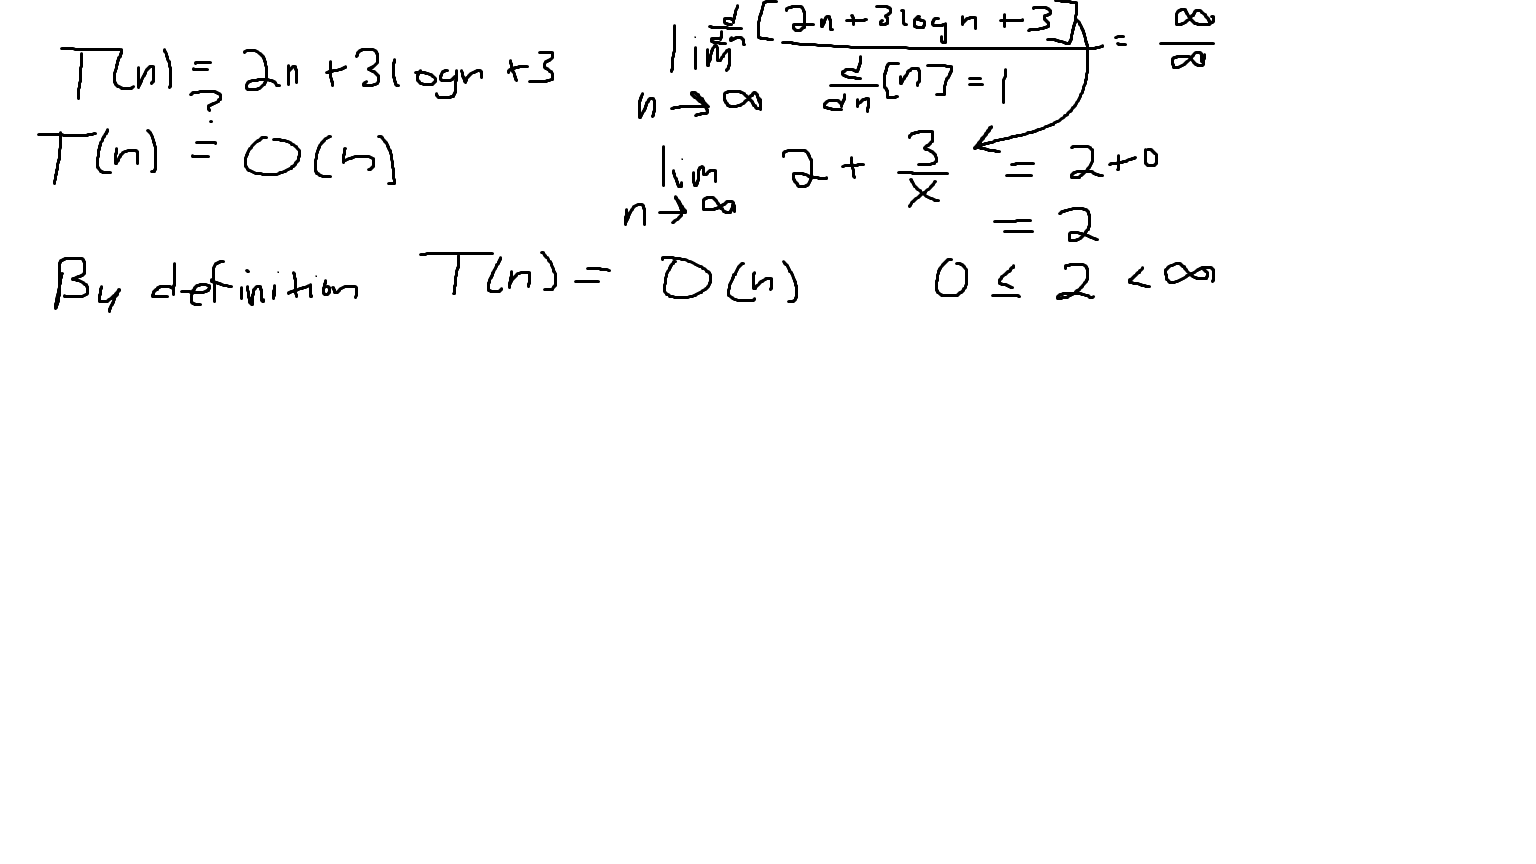 T(n) = 2n + 3logn + 3
T(n) ?= O(n)
lim n→∞ d/dn [2n + 3logn + 3] / d/dn [n] = 1 = ∞/∞
lim n→∞ 2 + 3/x = 2+0
= 2
By definition T(n) = O(n) 0 ≤ 2 < ∞